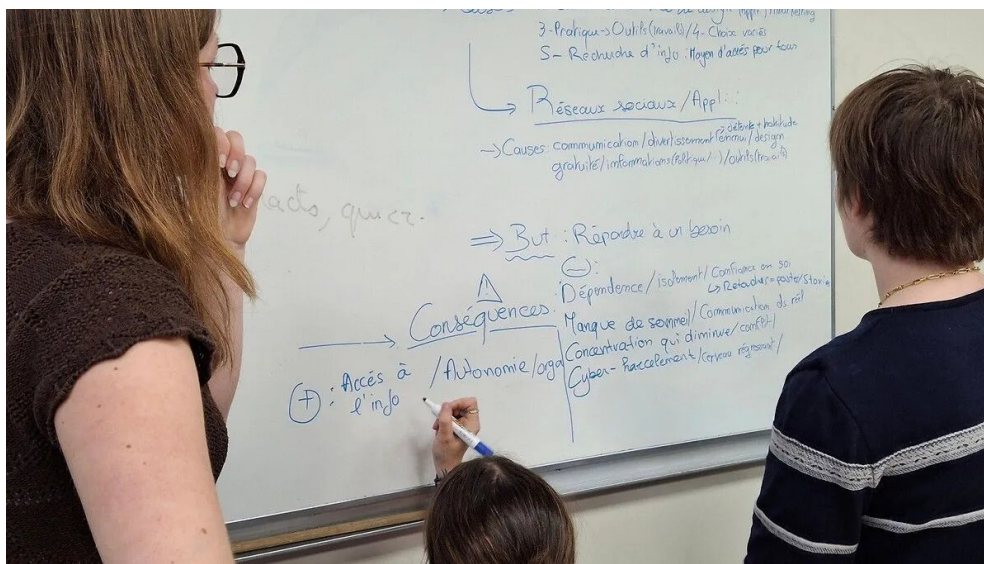 3-Pratique → Outils (travail) / 4- Choix variés
5- Recherche d'info : Moyen d'accès pour tous
→ Réseaux sociaux / Appl :
→ Causes : communication / divertissement (ennui / design
→ détente + habitude
gratuité / informations (Politique / ..) / outils (travail)
acto, quicr.
⇒ But : Répondre à un besoin
⊖ :
Dépendence / isolement / Confiance en soi
↳ Retouches = poster / Storie
Manque de sommeil / Communication ds réel
Concentration qui diminue / conflit /
Cyber-harcelement / cerveau régressant /
→ Conséquences :
⊕ : Accés à / Autonomie / orga
l'info